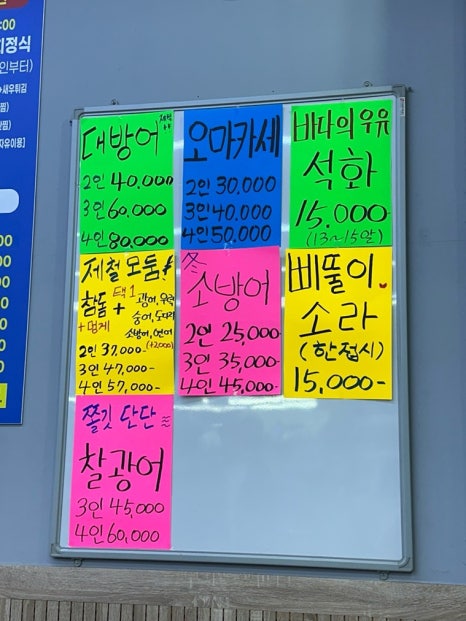 :00
정식
인부터)
+새우튀김
자유이용]
대방어
2인 40,000
3인 60,000
4인 80,000
오마카세
2인 30,000
3인 40,000
4인 50,000
바다의 우유
석화
15,000-
(13~15알)
제철 모둠!
참돔 + 택1
+멍게
광어, 우럭
숭어, 도다리
소방어, 연어
(+2000)
2인 37,000-
3인 47,000-
4인 57,000-
소방어
2인 25,000
3인 35,000
4인 45,000-
삐뚤이
소라
(한접시)
15,000-
쫄깃 단단
찰광어
3인 45,000
4인 60,000